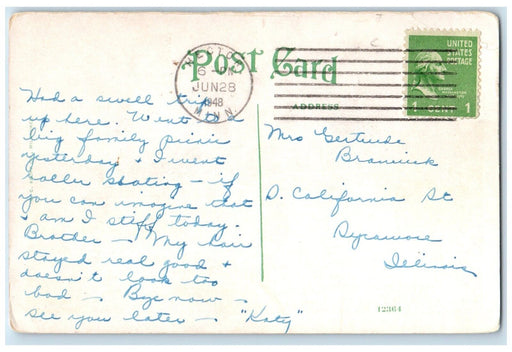 Post Card
6 PM
JUN 28
1948
MINN.
UNITED
STATES
POSTAGE
1 CENT 1
ADDRESS
Had a swell trip
up here. Went to a
big family picnic
yesterday & I went
roller skating – if
you can imagine that
& am I stiff today.
Brother – My hair
stayed real good &
doesn't look too
bad – Bye now –
see you later – "Katy"
Mrs Gertrude
Branwick
D. California St
Sycamore
Illinois
12364